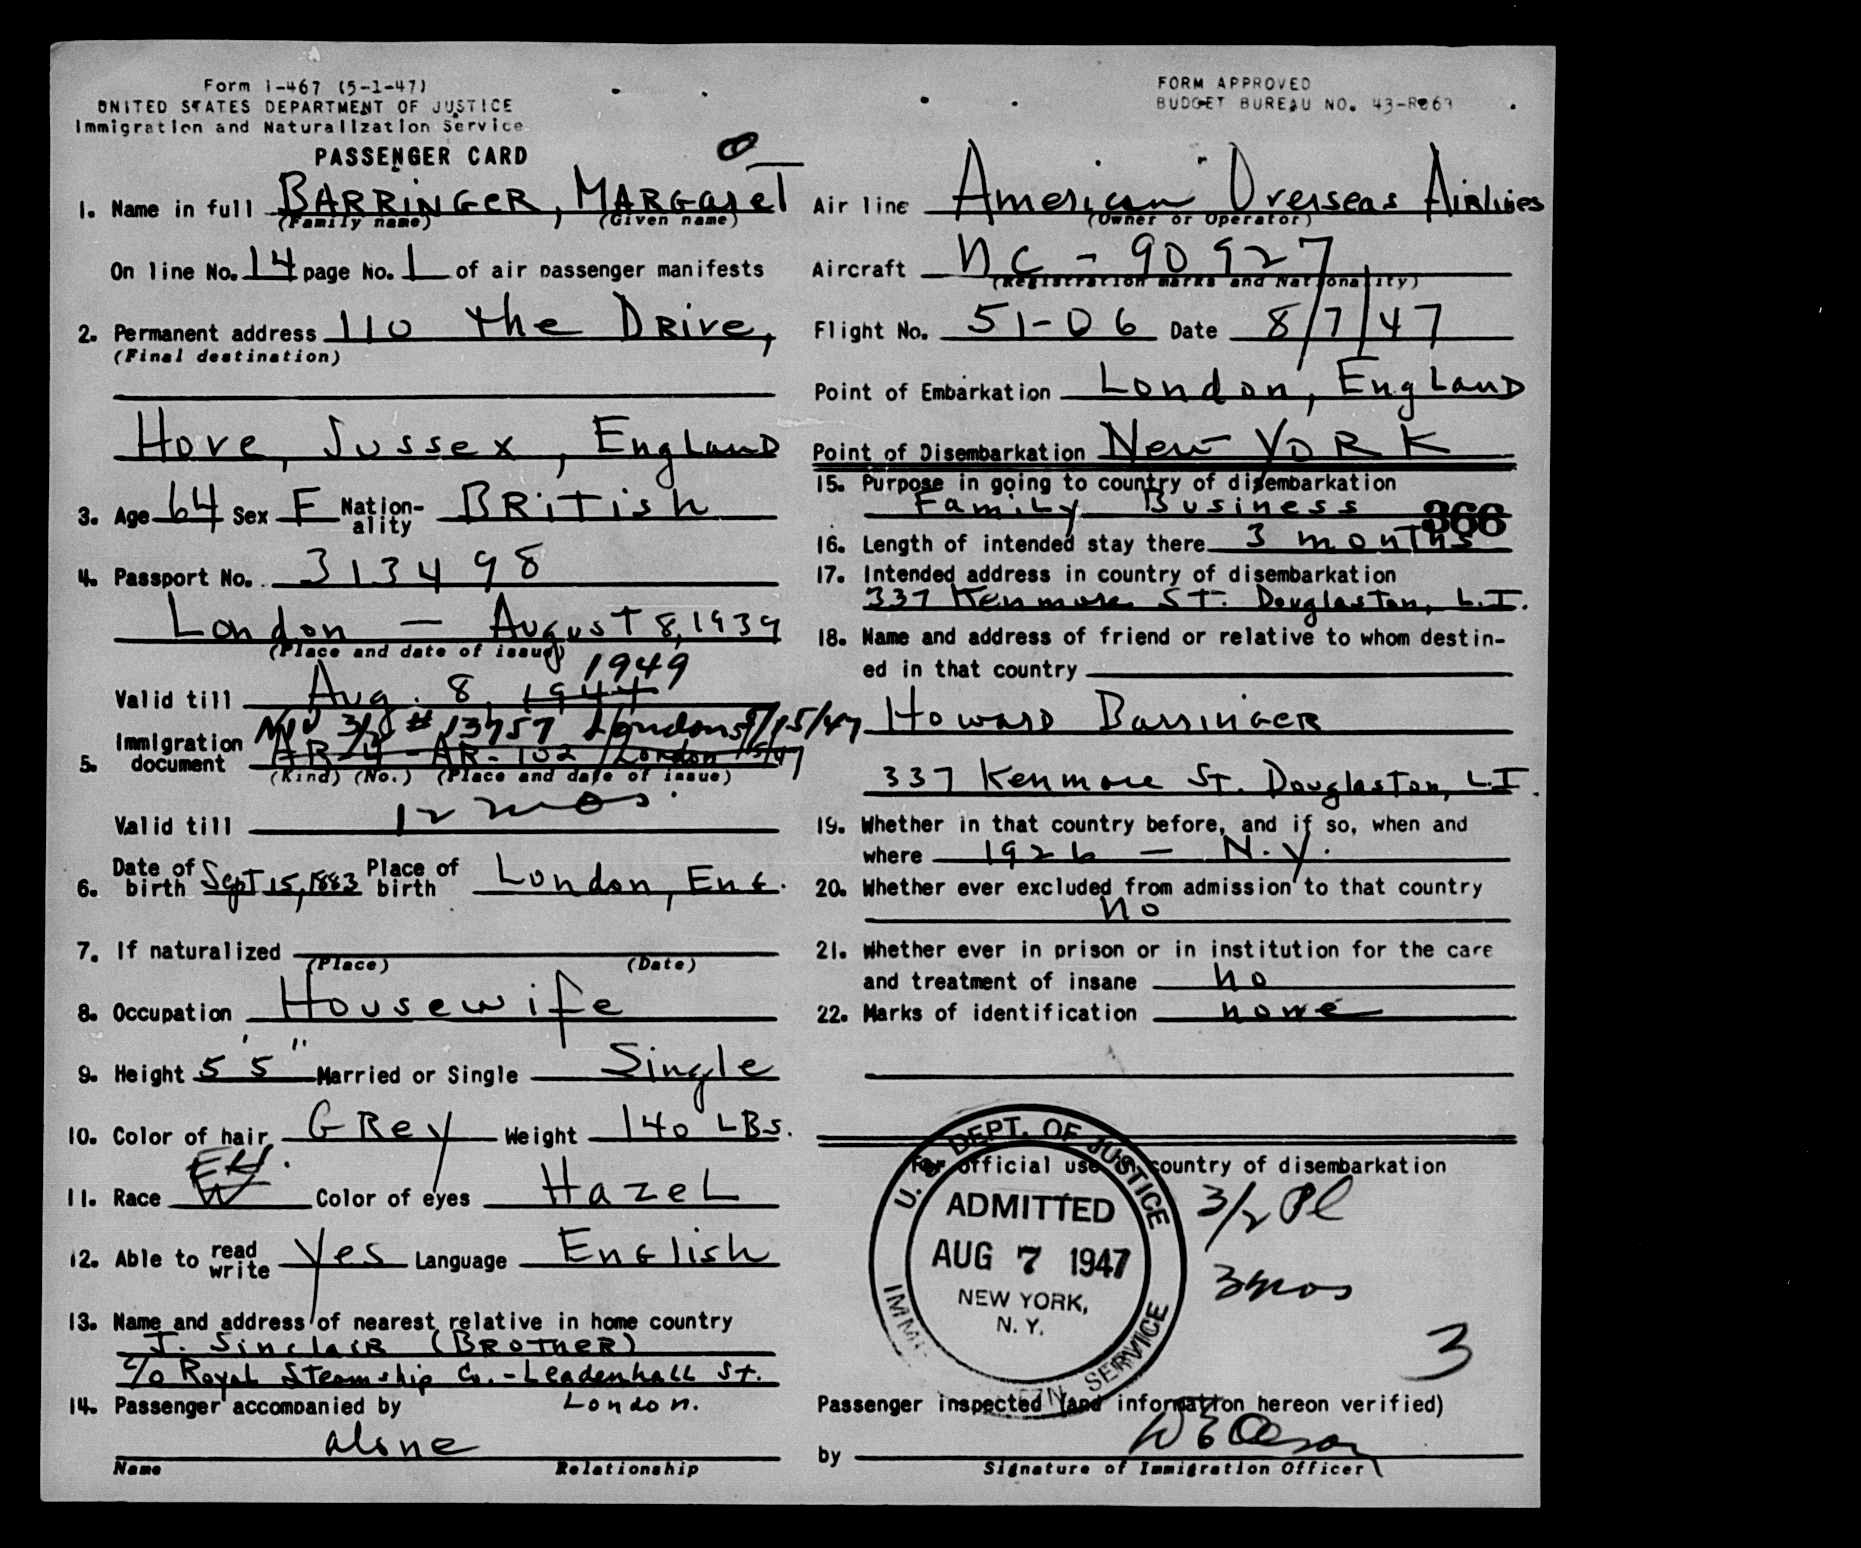 Form I-467 (5-1-47)
UNITED STATES DEPARTMENT OF JUSTICE
Immigration and Naturalization Service
PASSENGER CARD
1. Name in full BARRINGER, MARGARET
(Family name) (Given name)
On line No. 14 page No. 1 of air passenger manifests
2. Permanent address 110 the DRive,
(Final destination)
Hove, Sussex, England
3. Age 64 Sex F Nation-ality BRitish
4. Passport No. 313498
London — August 8, 1939
(Place and date of issue)
1949
Valid till Aug. 8, 1944
NIV 3/2 # 13757 London 5/15/47
5. Immigration document AR-4 - AR-102 London
(Kind) (No.) (Place and date of issue)
Valid till 12 mos.
6. Date of birth Sept 15, 1883 Place of birth London, Eng.
7. If naturalized
(Place) (Date)
8. Occupation Housewife
9. Height 5'5" Married or Single Single
10. Color of hair GRey Weight 140 LBs.
11. Race W Color of eyes HazeL
12. Able to read write yes Language English
13. Name and address of nearest relative in home country
J. Sinclair (BRotheR)
c/o Royal Steamship Co. - Leadenhall St.
London.
14. Passenger accompanied by
alone
Name Relationship
FORM APPROVED
BUDGET BUREAU NO. 43-R063
Air line American Overseas Airlines
(Owner or Operator)
Aircraft NC - 90927
(Registration marks and Nationality)
Flight No. 51-06 Date 8/7/47
Point of Embarkation London, England
Point of Disembarkation New YORK
15. Purpose in going to country of disembarkation
Family Business
366
16. Length of intended stay there 3 months
17. Intended address in country of disembarkation
337 Kenmore ST. Douglaston, L.I.
18. Name and address of friend or relative to whom destin-
ed in that country
Howard Barringer
337 Kenmore St. Douglaston, L.I.
19. Whether in that country before, and if so, when and
where 1926 — N.Y.
20. Whether ever excluded from admission to that country
no
21. Whether ever in prison or in institution for the care
and treatment of insane no
22. Marks of identification none
For official use in country of disembarkation
U. S. DEPT. OF JUSTICE
ADMITTED
AUG 7 1947
NEW YORK,
N. Y.
SERVICE
3/2
3 mos
3
Passenger inspected (and information hereon verified)
by
Signature of Immigration Officer